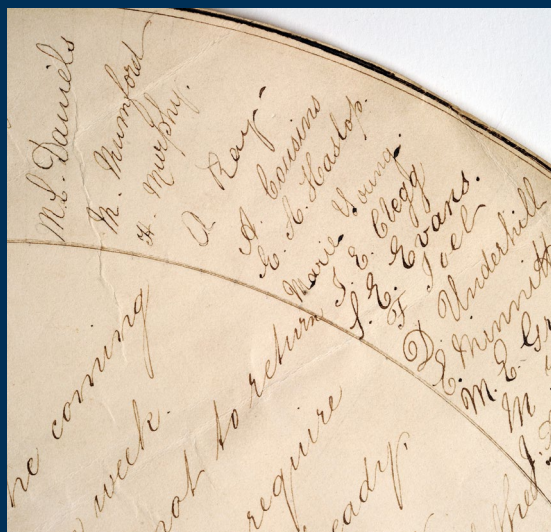 M. L. Daniels
M. Mumford
H. Murphy.
A Ray
A. Cousins
E. A. Haslop.
Marie Young.
J. E. Clegg
S. E. Evans.
F Joel
D. Underhill
E. Minnitt
M. E. Gr
M
J.
he coming
week.
not to return
require
ready